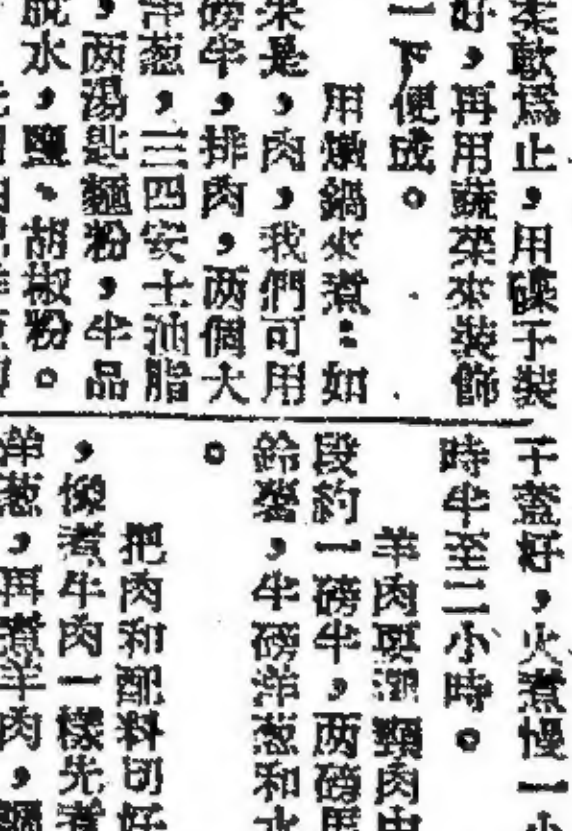 柔軟為止，用碟子裝
好，再用蔬菜來裝飾
一下便成。
用燉鍋來煮：如
果是，肉，我們可用
磅半，排肉，两個大
洋葱，三四安士油脂
，两湯匙麵粉，半品
脱水，鹽、胡椒粉。
子蓋好，火煮慢一小
時半至二小時。
羊肉要
頸肉
段約一磅半，两磅
鈴薯，半磅洋葱和水
。
把肉和配料切好
，像煮牛肉一樣先煮
洋葱，再煮羊肉，